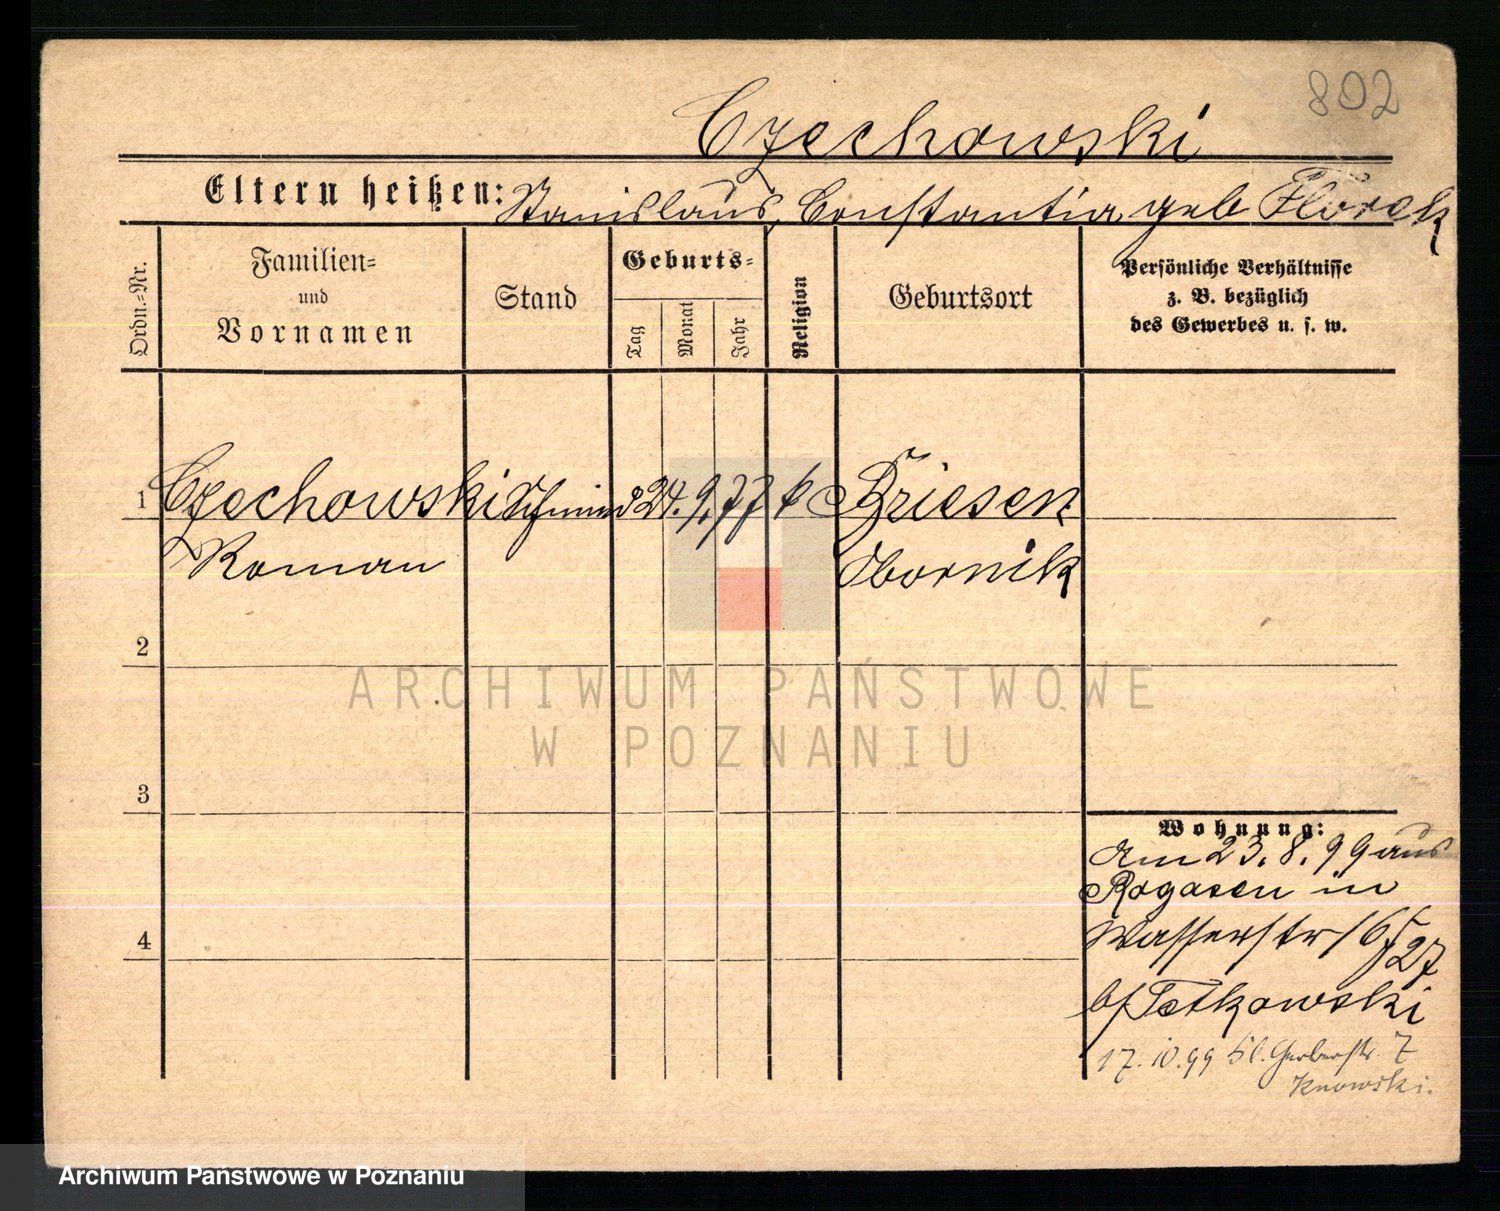 802
Czechowski
Eltern heißen: Stanislaus, Constantia geb Florek
Ordn.=Nr.
Familien=
und
Vornamen
Stand
Geburts=
Tag
Monat
Jahr
Religion
Geburtsort
Persönliche Verhältnisse
z. B. bezüglich
des Gewerbes u. s. w.
1 Czechowski Schmied 24. 9. 77 k Briesen
Roman Obornik
2
ARCHIWUM PAŃSTWOWE
W POZNANIU
3
Wohnung:
Am 23. 8. 99 aus
Rogasen in
Wasserstr
4
27
b/ Tetkowski
17. 10. 99 Kl. Gerberstr. 7
Knowski.
Archiwum Państwowe w Poznaniu